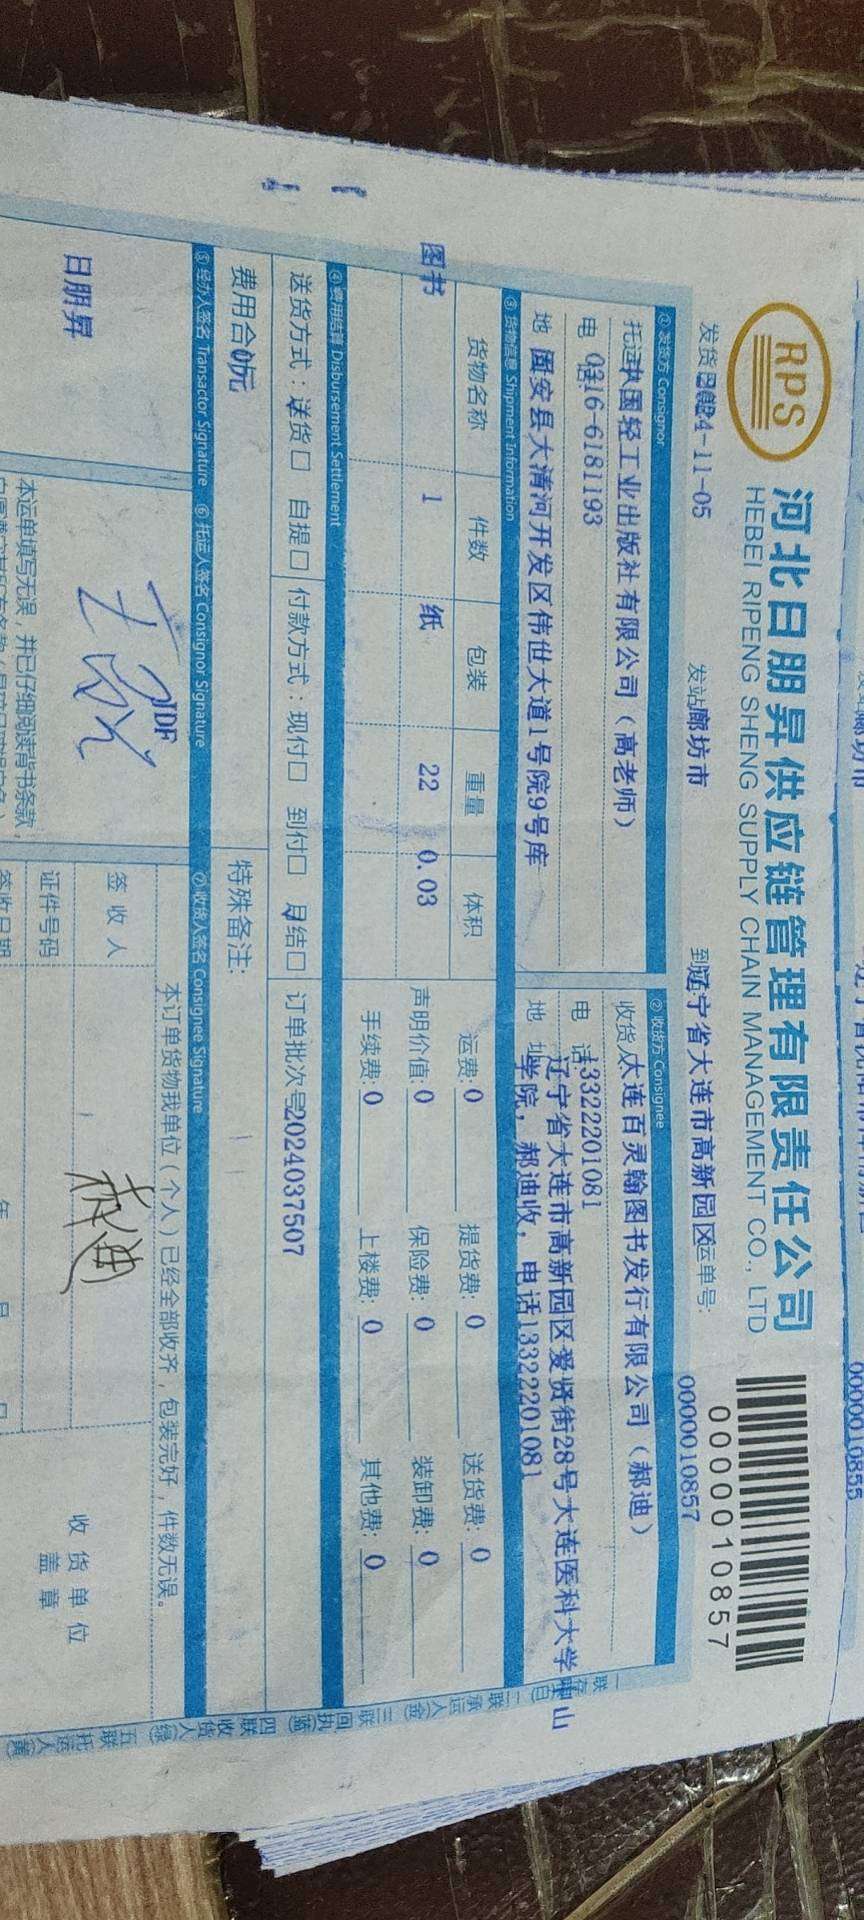 RPS
河北日朋昇供应链管理有限责任公司
HEBEI RIPENG SHENG SUPPLY CHAIN MANAGEMENT CO., LTD
0000010857
发货日期2024-11-05 发站廊坊市 到辽宁省大连市高新园区运单号: 0000010857
① 发货方 Consignor
托运人中国轻工业出版社有限公司（高老师）
电话 0316-6181193
地 固安县大清河开发区伟世大道1号院9号库
② 收货方 Consignee
收货人大连百灵翰图书发行有限公司（郝迪）
电 话:13322201081
地 址 辽宁省大连市高新园区爱贤街28号大连医科大学中山
学院，郝迪收，电话13322201081
③ 货物信息 Shipment Information
货物名称 件数 包装 重量 体积
图书 1 纸 22 0.03
运费: 0 提货费: 0 送货费: 0
声明价值: 0 保险费: 0 装卸费: 0
手续费: 0 上楼费: 0 其他费: 0
④ 费用结算 Disbursement Settlement
送货方式：送货☑ 自提□ 付款方式：现付□ 到付□ 月结☑ 订单批次号2024037507
费用合计0元
特殊备注:
⑤ 经办人签名 Transactor Signature ⑥ 托运人签名 Consignor Signature ⑦ 收货人签名 Consignee Signature
日朋昇
JDF
本订单货物我单位（个人）已经全部收齐，包装完好，件数无误。
签收人
郝迪
证件号码
签收日期 年 月 日
收货单位
盖章
本运单填写无误，并已仔细阅读背书条款，
一联存根(白) 二联承运人(金) 三联回执(蓝) 四联收货人(绿) 五联托运人(黄)
0000010855